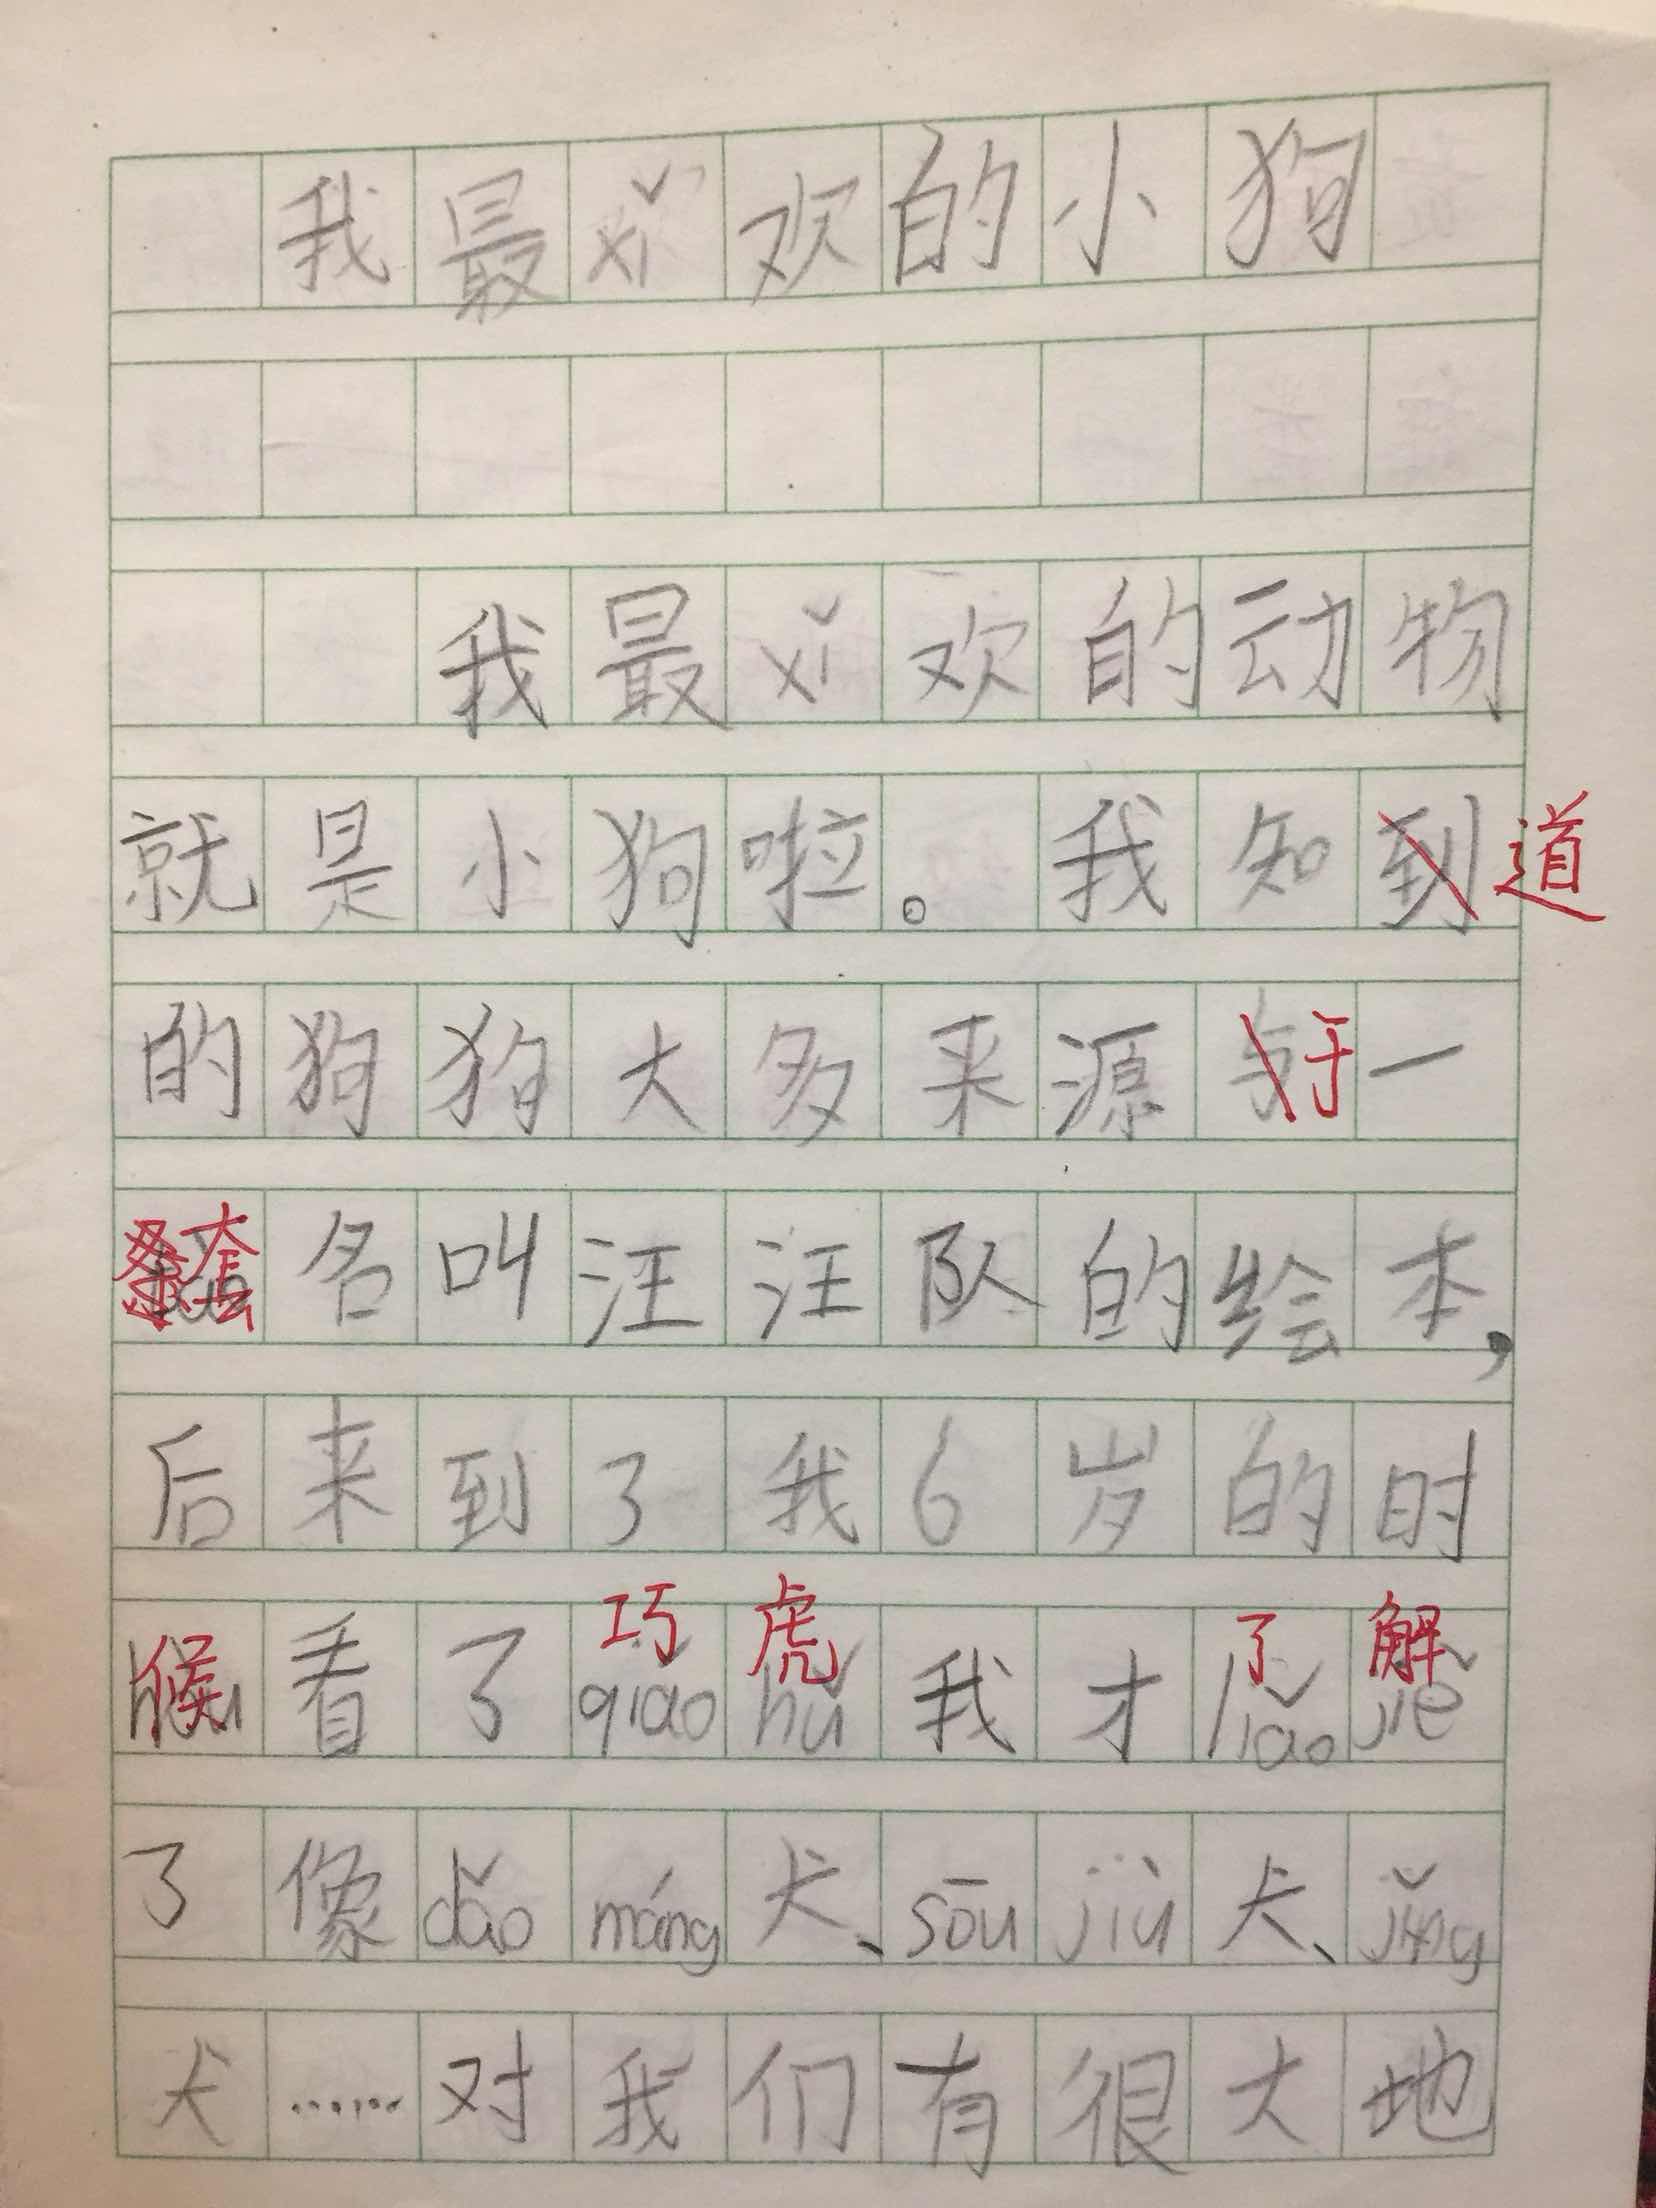 我最xǐ欢的小狗
我最xǐ欢的动物
就是小狗啦。我知到道
的狗狗大多来源与于一
套名叫汪汪队的绘本,
后来到了我6岁的时
候看了巧qiǎo虎hǔ我才了liǎo解jiě
了像dǎo máng犬、sōu jiù犬、jǐng
犬……对我们有很大地